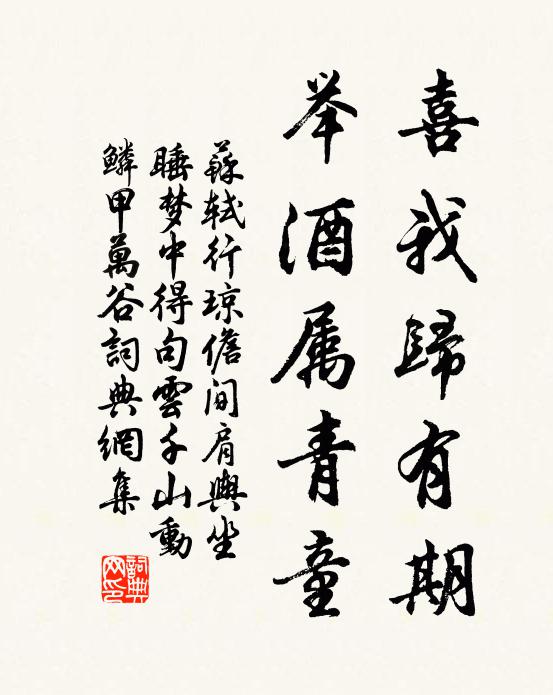 喜我歸有期
举酒属青童
蘇軾行琼儋间肩輿坐
睡梦中得句雲千山動
鱗甲萬谷詞典網集
詞典網印